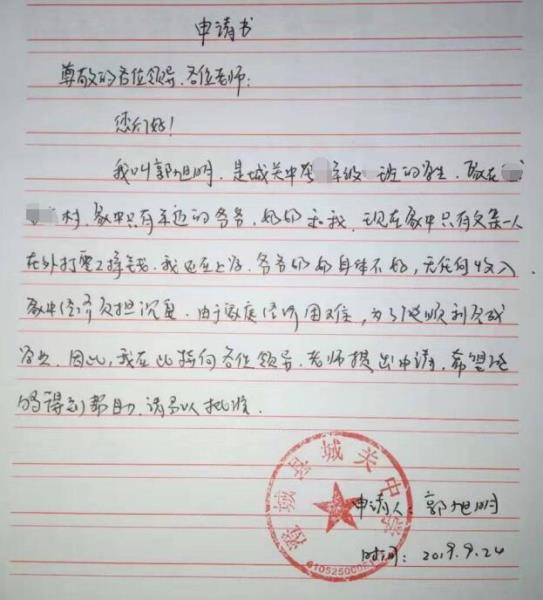 申请书
尊敬的各位领导、各位老师:
您们好!
我叫郭旭明,是城关中学 年级 班的学生,家在
村,家中只有年迈的爷爷、奶奶和我,现在家中只有父亲一人
在外打零工挣钱,我还在上学,爷爷奶奶身体不好,无任何收入
家中经济负担沉重,由于家庭经济困难,为了能顺利完成
学业,因此,我在此特向各位领导、老师提出申请,希望能
够得到帮助,请予以批准.
澄城县城关中学
申请人:郭旭明
时间:2019.9.24